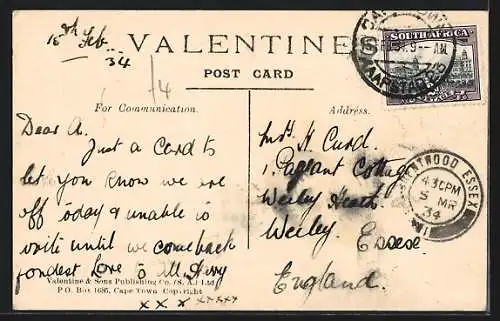 16th Feb
34
VALENTINE
POST CARD
/4
For Communication.
Address.
Dear A.
Just a Card to
let you know we are
off today & unable to
write until we come back
fondest Love to All
x x x xxxxx
Mrs H. Curd.
1. Pageant Cottage
Weeley Heath.
Weeley,
Essex
England.
Valentine & Sons Publishing Co. (S. A.) Ltd.
P. O. Box 1685, Cape Town Copyright
SOUTH AFRICA
AM
KAAPSTAD
BRENTWOOD ESSEX
4 30 PM
5 MR
34